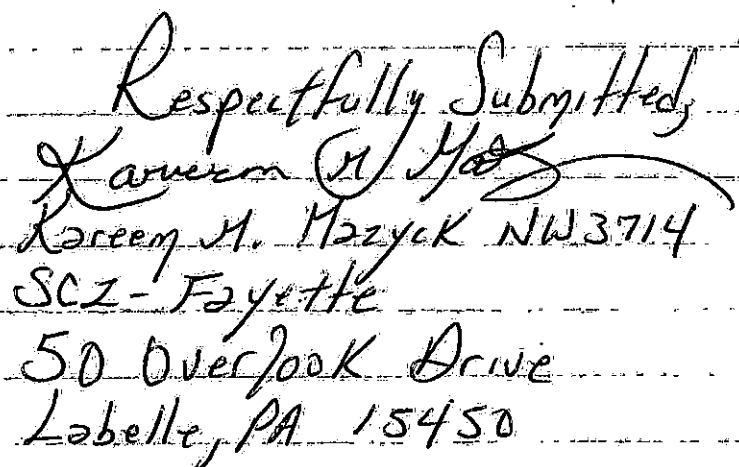 Respectfully Submitted,
Kareem M. Mazyck NW3714
SCI-Fayette
50 Overlook Drive
Labelle, PA 15450